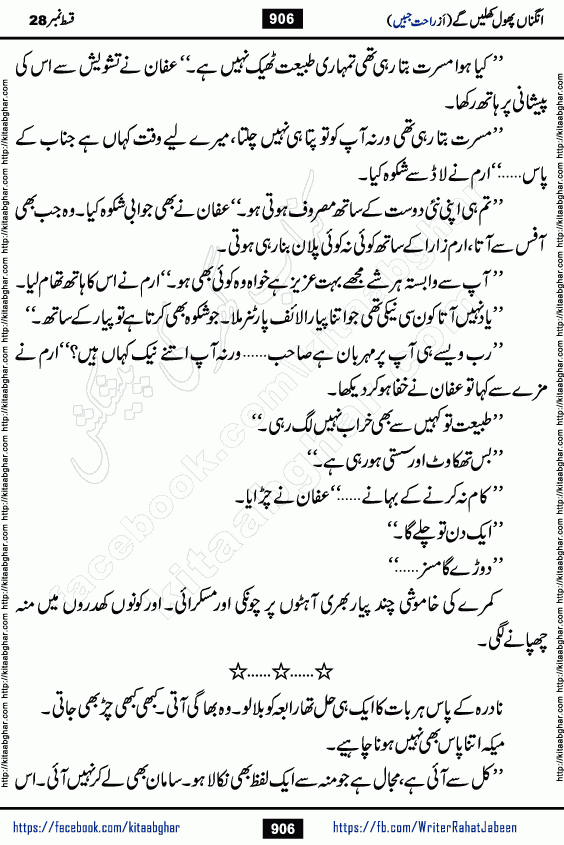 انگناں پھول کھلیں گے (از راحت جبیں) 906 قسط نمبر 28
’’کیا ہوا مسرت بتا رہی تھی تمہاری طبیعت ٹھیک نہیں ہے۔‘‘ عفان نے تشویش سے اس کی
پیشانی پر ہاتھ رکھا۔
’’مسرت بتا رہی تھی ورنہ آپ کو تو پتا ہی نہیں چلتا، میرے لیے وقت کہاں ہے جناب کے
پاس......‘‘ ارم نے لاڈ سے شکوہ کیا۔
’’تم ہی اپنی نئی دوست کے ساتھ مصروف ہوتی ہو۔‘‘ عفان نے بھی جوابی شکوہ کیا۔ وہ جب بھی
آفس سے آتا، ارم زارا کے ساتھ کوئی نہ کوئی پلان بنا رہی ہوتی۔
’’آپ سے وابستہ ہر شے مجھے بہت عزیز ہے خواہ وہ کوئی بھی ہو۔‘‘ ارم نے اس کا ہاتھ تھام لیا۔
’’یاد نہیں آتا کون سی نیکی تھی جو اتنا پیارا لائف پارٹنر ملا۔ جو شکوہ بھی کرتا ہے تو پیار کے ساتھ۔‘‘
’’رب ویسے ہی آپ پر مہربان ہے صاحب...... ورنہ آپ اتنے نیک کہاں ہیں؟‘‘ ارم نے
مزے سے کہا تو عفان نے خفا ہو کر دیکھا۔
’’طبیعت تو کہیں سے بھی خراب نہیں لگ رہی۔‘‘
’’بس تھکاوٹ اور سستی ہو رہی ہے۔‘‘
’’کام نہ کرنے کے بہانے......‘‘ عفان نے چڑایا۔
’’ایک دن تو چلے گا۔‘‘
’’دوڑے گا مسز......‘‘
کمرے کی خاموشی چند پیار بھری آہٹوں پر چونکی اور مسکرائی۔ اور کونوں کھدروں میں منہ
چھپانے لگی۔
☆......☆......☆
نادرہ کے پاس ہر بات کا ایک ہی حل تھا رابعہ کو بلا لو۔ وہ بھاگی آتی۔ کبھی کبھی چڑ بھی جاتی۔
میکہ اتنا پاس بھی نہیں ہونا چاہیے۔
’’کل سے آئی ہے، مجال ہے جو منہ سے ایک لفظ بھی نکالا ہو۔ سامان بھی لے کر نہیں آئی۔ اس
https://facebook.com/kitaabghar 906 https://fb.com/WriterRahatJabeen
http://kitaabghar.com http://kitaabghar.com http://kitaabghar.com http://kitaabghar.com http://kitaabghar.com http://kitaabghar.com http://kitaabghar.com
http://kitaabghar.com http://kitaabghar.com http://kitaabghar.com http://kitaabghar.com http://kitaabghar.com http://kitaabghar.com http://kitaabghar.com
کتاب گھر کی پیشکش
facebook.com/kitaabghar
kitaabghar.com